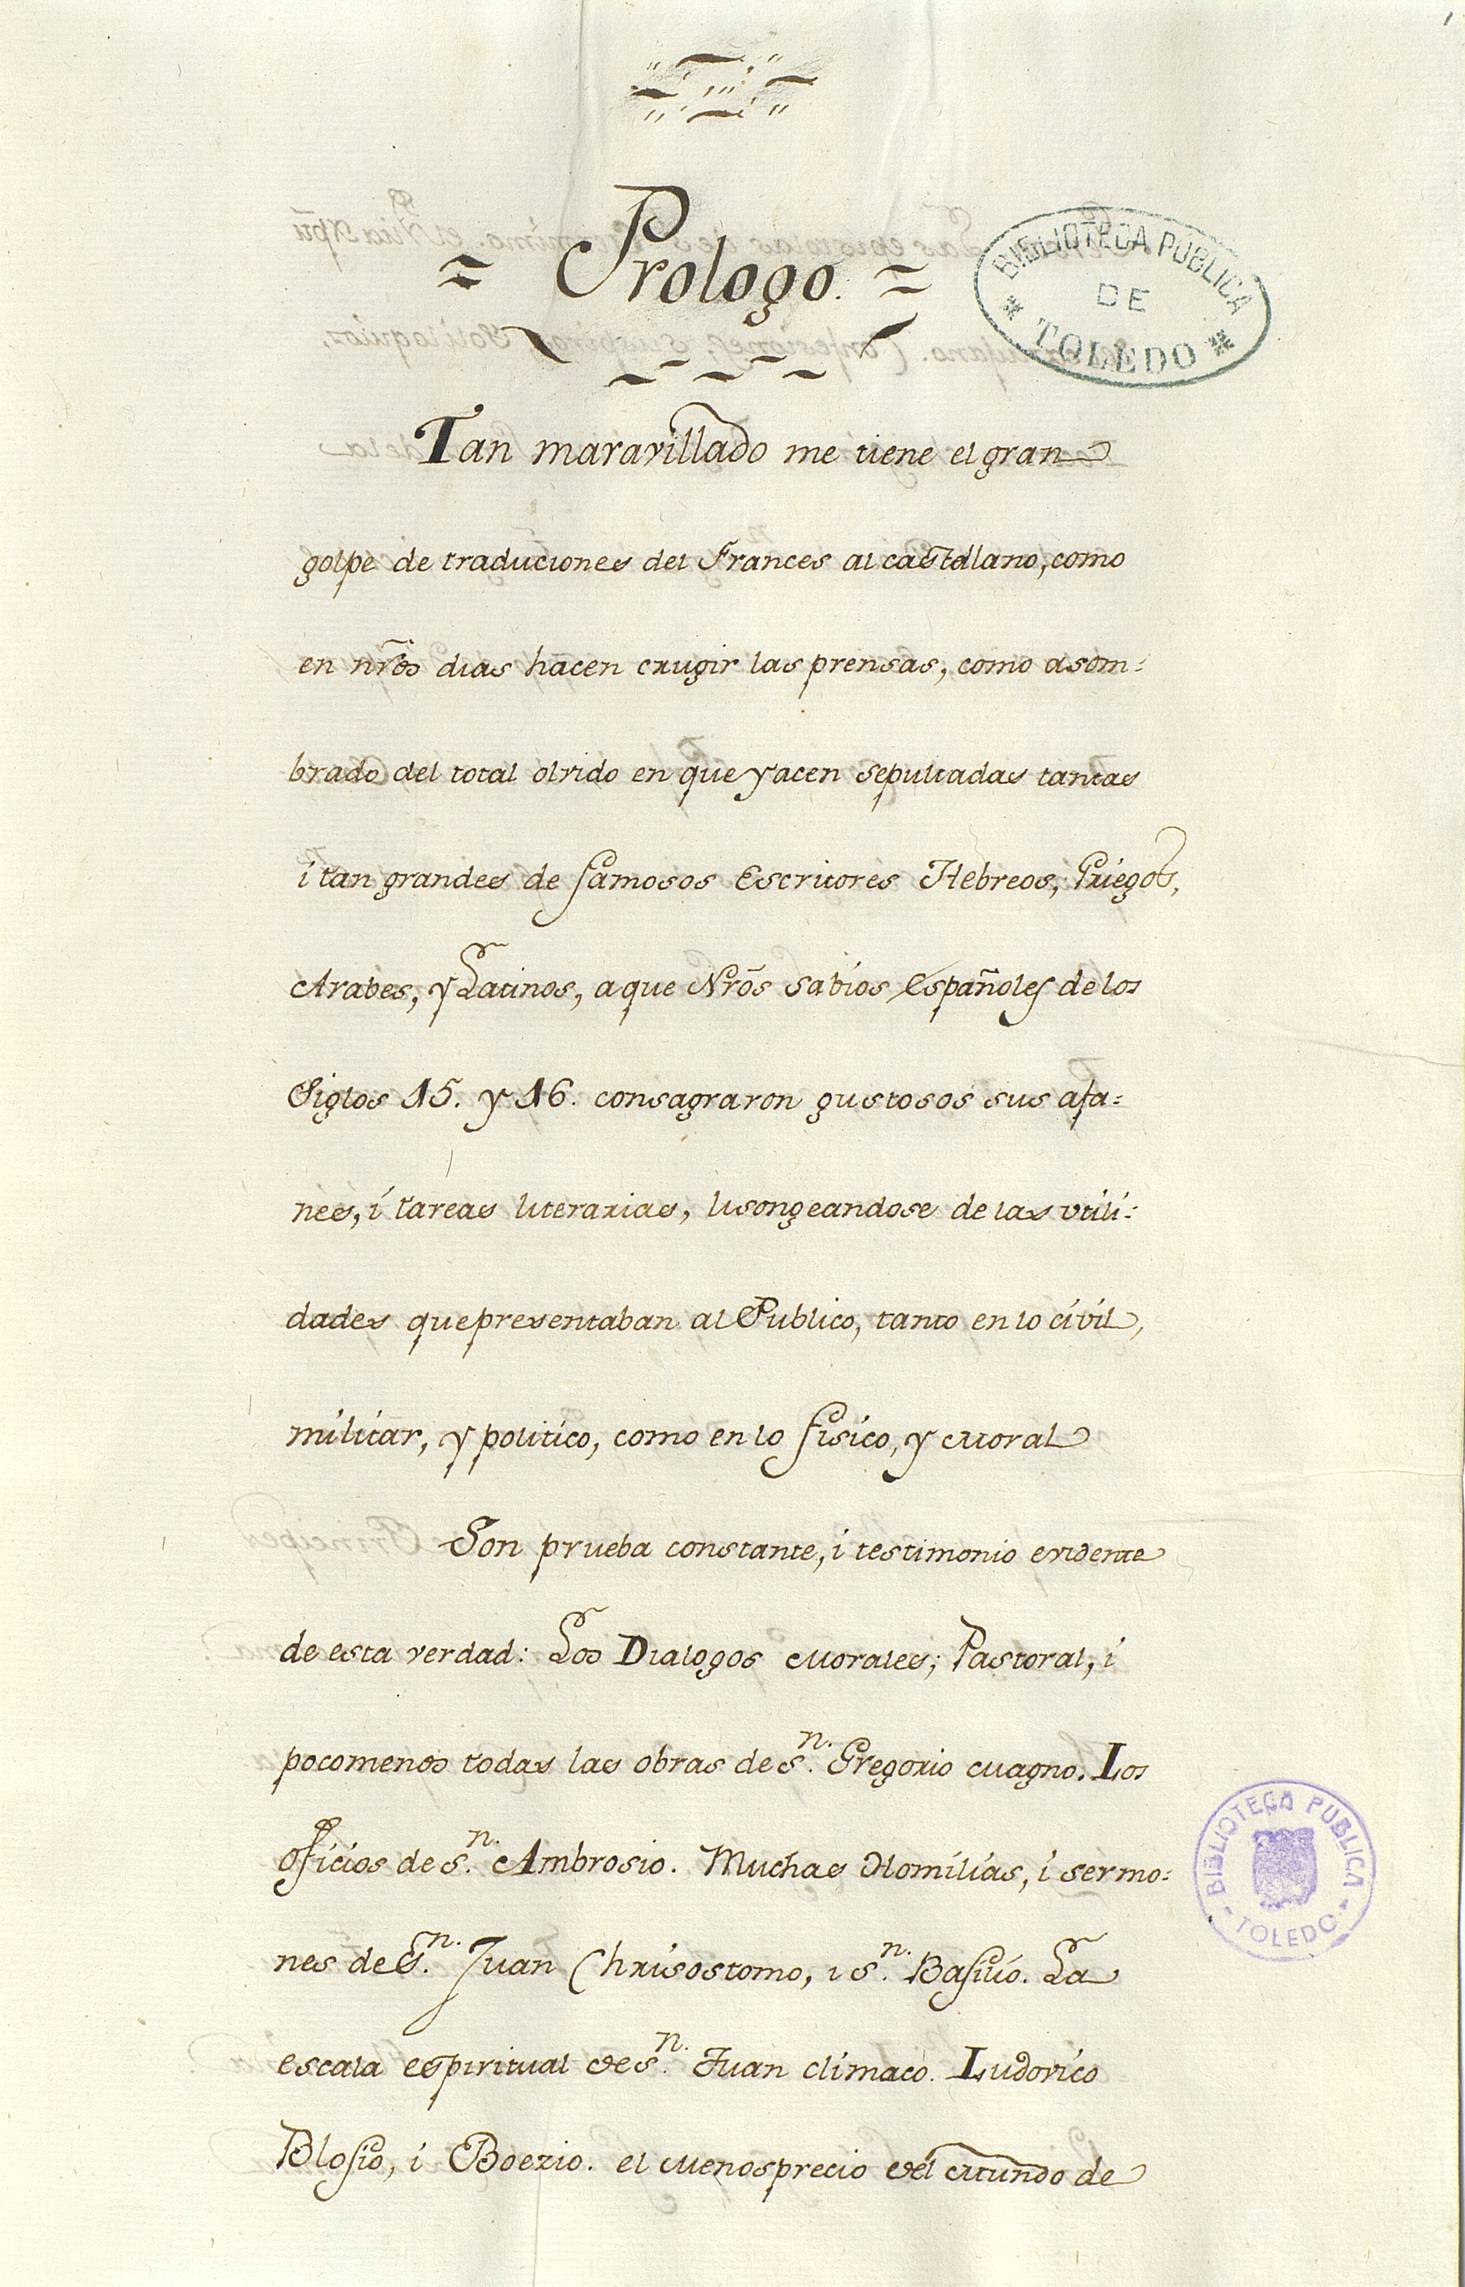 1
= Prologo. =
BIBLIOTECA PUBLICA
DE
TOLEDO
Tan maravillado me tiene el gran
golpe de traduciones del Frances al castellano, como
en nr̃os dias hacen crugir las prensas, como asom=
brado del total olvido en que yacen sepultadas tantas
i tan grandes de famosos Escritores Hebreos, Griegos,
Arabes, y Latinos, a que Nr̃os Sabios Españoles de los
Siglos 15. y 16. consagraron gustosos sus afa=
nes, i tareas literarias, lisongeandose de las utili=
dades que presentaban al Publico, tanto en lo civil,
militar, y politico, como en lo fisico, y Moral
Son prueba constante, i testimonio evidente
de esta verdad: Los Dialogos Morales; Pastoral, i
poco menos todas las obras de Sn. Gregorio Magno. Los
Oficios de Sn. Ambrosio. Muchas Homilias, i sermo=
nes de Sn. Juan Chrisostomo, i Sn. Basilio. La
escala espiritual de Sn. Juan climaco. Ludovico
Blosio, i Boezio. el Menosprecio del Mundo de
BIBLIOTECA PUBLICA
TOLEDO